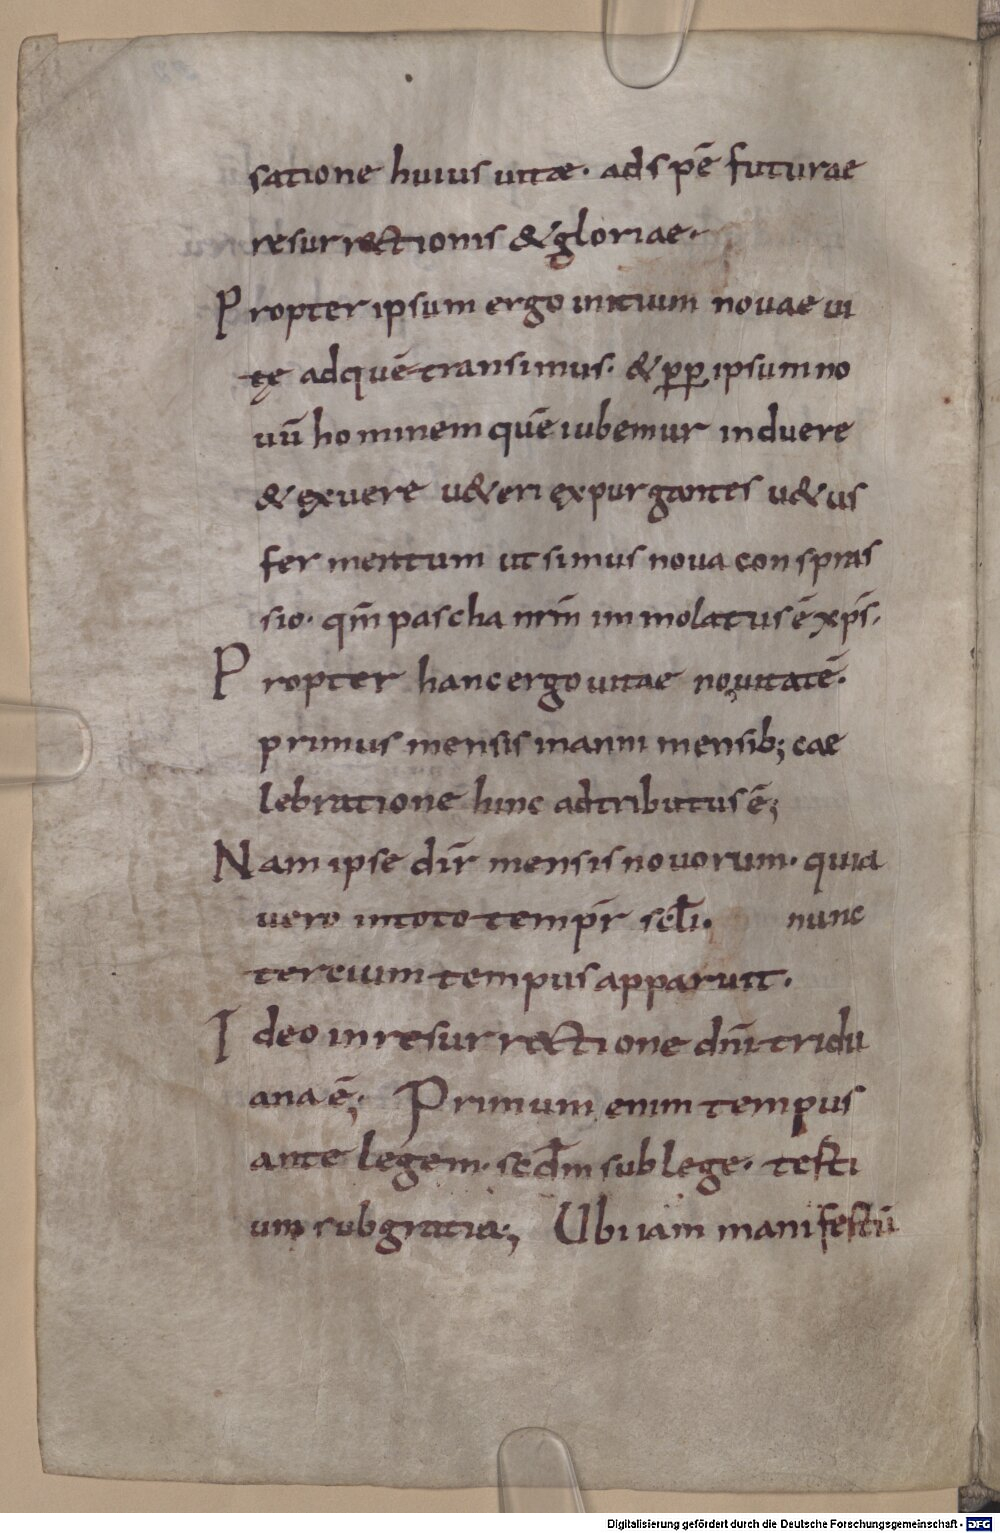 satione huius uitae· ad spē futurae
resurrectionis & gloriae·
Propter ipsum ergo initium novae ui
tę ad quē transimus· & pp ipsum no
uū hominem quē iubemur induere
& exuere u&eri expurgantes u&us
fermentum ut simus nova conspras
sio· qm̄ pascha nrm̄ immolatus ē xp̄s·
Propter hanc ergo uitae nouitatē·
primus mensis in anni mensib; cae
lebratione hinc adtributus ē;
Nam ipse dir̄ mensis novorum· quia
uero in toto temp̄r sel̄i· nunc
tercium tempus apparuit·
Ideo in resurrectione dn̄i tridu
ana ē; Primum enim tempus
ante legem· sed̄m sub lege· terti
um sub gratia; Ubi iam manifestū
Digitalisierung gefördert durch die Deutsche Forschungsgemeinschaft - DFG